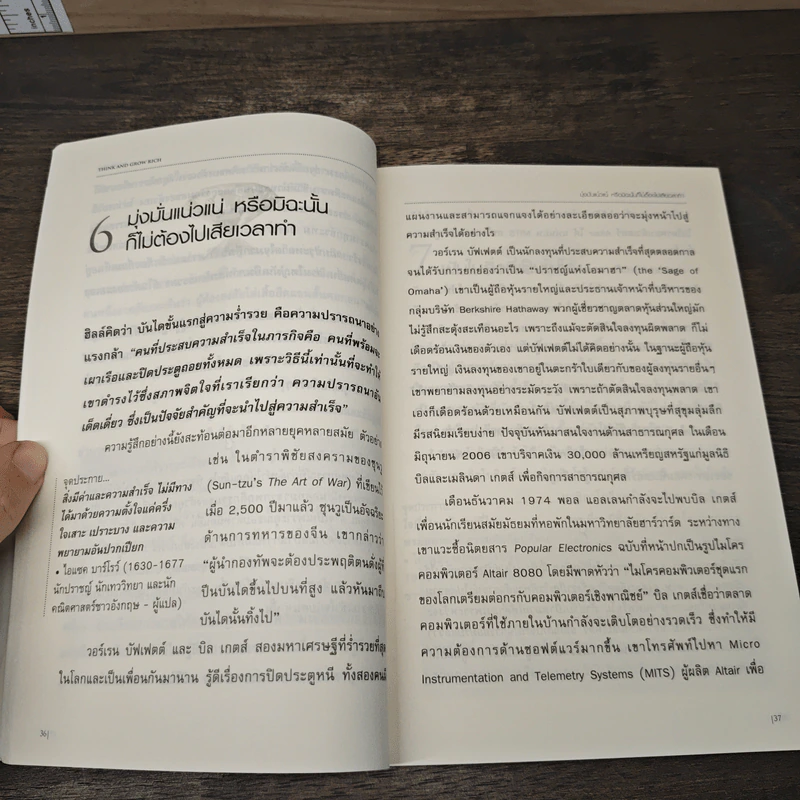 inches
THINK AND GROW RICH
6 มุ่งมั่นแน่วแน่ หรือมิฉะนั้น
ก็ไม่ต้องไปเสียเวลาทำ
ฮิลล์คิดว่า บันไดขั้นแรกสู่ความร่ำรวย คือความปรารถนาอย่าง
แรงกล้า "คนที่ประสบความสำเร็จในภารกิจคือ คนที่พร้อมจะ
เผาเรือและปิดประตูถอยทั้งหมด เพราะวิธีนี้เท่านั้นที่จะทำให้
เขาดำรงไว้ซึ่งสภาพจิตใจที่เราเรียกว่า ความปรารถนาอัน
เด็ดเดี่ยว ซึ่งเป็นปัจจัยสำคัญที่จะนำไปสู่ความสำเร็จ"
ความรู้สึกอย่างนี้ยังสะท้อนต่อมาอีกหลายยุคหลายสมัย ตัวอย่าง
เช่น ในตำราพิชัยสงครามของซุนวู
(Sun-tzu's The Art of War) ที่เขียนไว้
เมื่อ 2,500 ปีมาแล้ว ซุนวูเป็นอัจฉริยะ
ด้านการทหารของจีน เขากล่าวว่า
"ผู้นำกองทัพจะต้องประพฤติตนดั่งผู้ที่
ปีนบันไดขึ้นไปบนที่สูง แล้วหันมาถีบ
บันไดนั้นทิ้งไป"
จุดประกาย...
สิ่งมีค่าและความสำเร็จ ไม่มีทาง
ได้มาด้วยความตั้งใจแค่ครึ่ง
ใจเสาะ เปราะบาง และความ
พยายามอันปวกเปียก
• ไอแซค บาร์โรว์ (1630-1677
นักปราชญ์ นักเทววิทยา และนัก
คณิตศาสตร์ชาวอังกฤษ - ผู้แปล)
วอร์เรน บัฟเฟตต์ และ บิล เกตส์ สองมหาเศรษฐีที่ร่ำรวยที่สุด
ในโลกและเป็นเพื่อนกันมานาน รู้ดีเรื่องการปิดประตูหนี ทั้งสองคนมี
36|
มุ่งมั่นแน่วแน่ หรือมิฉะนั้นก็ไม่ต้องไปเสียเวลาทำ
แผนงานและสามารถแจกแจงได้อย่างละเอียดลออว่าจะมุ่งหน้าไปสู่
ความสำเร็จได้อย่างไร
วอร์เรน บัฟเฟตต์ เป็นนักลงทุนที่ประสบความสำเร็จที่สุดตลอดกาล
จนได้รับการยกย่องว่าเป็น "ปราชญ์แห่งโอมาฮา" (the 'Sage of
Omaha') เขาเป็นผู้ถือหุ้นรายใหญ่และประธานเจ้าหน้าที่บริหารของ
กลุ่มบริษัท Berkshire Hathaway พวกผู้เชี่ยวชาญตลาดหุ้นส่วนใหญ่มัก
ไม่รู้สึกสะดุ้งสะเทือนอะไร เพราะถึงแม้จะตัดสินใจลงทุนผิดพลาด ก็ไม่
เดือดร้อนเงินของตัวเอง แต่บัฟเฟตต์ไม่ได้คิดอย่างนั้น ในฐานะผู้ถือหุ้น
รายใหญ่ เงินลงทุนของเขาอยู่ในตะกร้าใบเดียวกับของผู้ลงทุนรายอื่นๆ
เขาพยายามลงทุนอย่างระมัดระวัง เพราะถ้าตัดสินใจลงทุนพลาด เขา
เองก็เดือดร้อนด้วยเหมือนกัน บัฟเฟตต์เป็นสุภาพบุรุษที่สุขุมลุ่มลึก
มีรสนิยมเรียบง่าย ปัจจุบันหันมาสนใจงานด้านสาธารณกุศล ในเดือน
มิถุนายน 2006 เขาบริจาคเงิน 30,000 ล้านเหรียญสหรัฐแก่มูลนิธิ
บิลและเมลินดา เกตส์ เพื่อกิจการสาธารณกุศล
เดือนธันวาคม 1974 พอล แอลเลนกำลังจะไปพบบิล เกตส์
เพื่อนนักเรียนสมัยมัธยมที่หอพักในมหาวิทยาลัยฮาร์วาร์ด ระหว่างทาง
เขาแวะซื้อนิตยสาร Popular Electronics ฉบับที่หน้าปกเป็นรูปไมโคร
คอมพิวเตอร์ Altair 8080 โดยมีพาดหัวว่า "ไมโครคอมพิวเตอร์ชุดแรก
ของโลกเตรียมต่อกรกับคอมพิวเตอร์เชิงพาณิชย์" บิล เกตส์เชื่อว่าตลาด
คอมพิวเตอร์ที่ใช้ภายในบ้านกำลังจะเติบโตอย่างรวดเร็ว ซึ่งทำให้มี
ความต้องการด้านซอฟต์แวร์มากขึ้น เขาโทรศัพท์ไปหา Micro
Instrumentation and Telemetry Systems (MITS) ผู้ผลิต Altair เพื่อ
|37